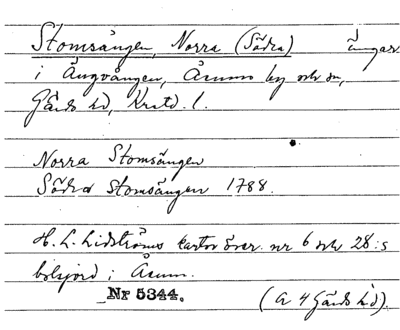 Stomsängen, Norra (Södra) ängar
i Ängvången, Åraus by och sn,
Gärds hd, Kristd. l.
Norra Stomsängen
Södra Stomsängen 1788.
H. L. Lidströms kartor över nr 6 och 28:s
bolsjord i Åraus.
Nr 5344.
(A 4 Gärds hd).